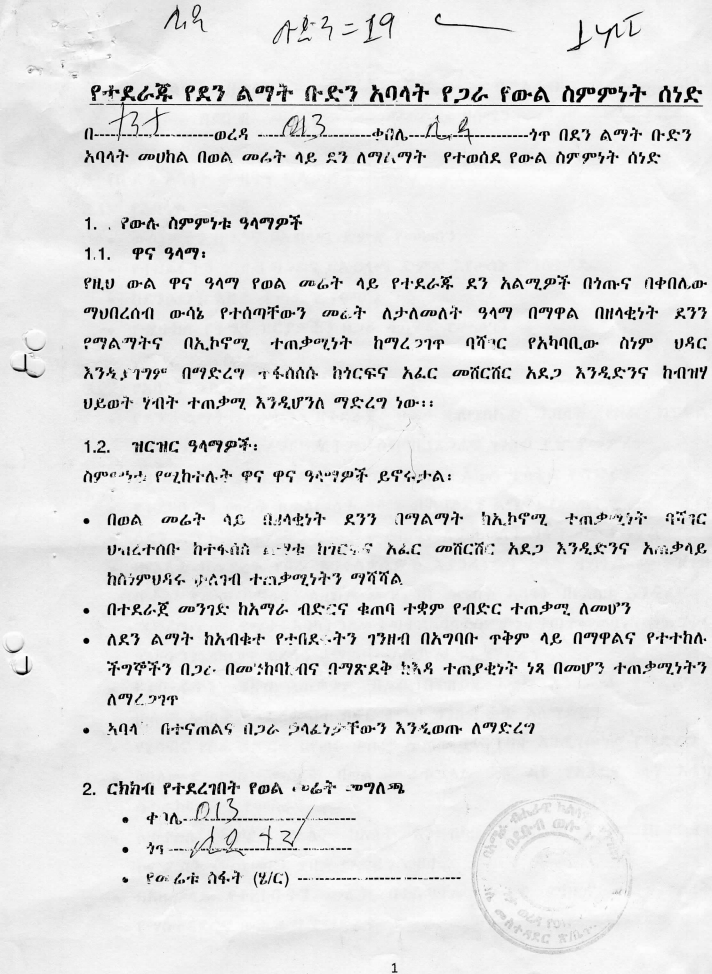 ቡድን = 19
የተደራጁ የደን ልማት ቡድን አባላት የጋራ የውል ስምምነት ሰነድ
በ-----------------ወረዳ ---013---ቀበሌ-----------------ጎጥ በደን ልማት ቡድን
አባላት መሀከል በወል መሬት ላይ ደን ለማልማት የተወሰደ የውል ስምምነት ሰነድ
1. የውሉ ስምምነቱ ዓላማዎች
1.1. ዋና ዓላማ፡
የዚህ ውል ዋና ዓላማ የወል መሬት ላይ የተደራጁ ደን አልሚዎች በጎጡና በቀበሌው
ማህበረሰብ ውሳኔ የተሰጣቸውን መሬት ለታለመለት ዓላማ በማዋል በዘላቂነት ደንን
የማልማትና በኢኮኖሚ ተጠቃሚነት ከማረጋገጥ ባሻገር የአካባቢው ስነም ህዳር
እንዲያገግም በማድረግ ተፋሰሰሱ ከጎርፍና አፈር መሸርሸር አደጋ እንዲድንና ከብዝሃ
ህይወት ሃብት ተጠቃሚ እንዲሆንለ ማድረግ ነው፡፡
1.2. ዝርዝር ዓላማዎች፡
ስምምነቱ የሚከተሉት ዋና ዋና ዓላማዎች ይኖሩታል፡
• በወል መሬት ላይ በዘላቂነት ደንን በማልማት ከኢኮኖሚ ተጠቃሚነት ባሻገር
ህብረተሰቡ ከተፋሰስ ከጎርፍና አፈር መሸርሸር አደጋ እንዲድንና አጠቃላይ
ከስነምህዳሩ ተጠቃሚነትን ማሻሻል
• በተደራጀ መንገድ ከአማራ ብድርና ቁጠባ ተቋም የብድር ተጠቃሚ ለመሆን
• ለደን ልማት ከአብቁተ የተበደሩትን ገንዘብ በአግባቡ ጥቅም ላይ በማዋልና የተተከሉ
ችግኞችን በጋራ በመንከባከብና በማጽደቅ ከእዳ ተጠያቂነት ነጻ በመሆን ተጠቃሚነትን
ለማረጋገጥ
• አባላ በተናጠልና በጋራ ኃላፊነታቸውን እንዲወጡ ለማድረግ
2. ርክክብ የተደረገበት የወል መሬት መግለጫ
• ቀበሌ---013-----------------
• ጎጥ---------------------
• የመሬቱ ስፋት (ሄ/ር) ---------------------
1